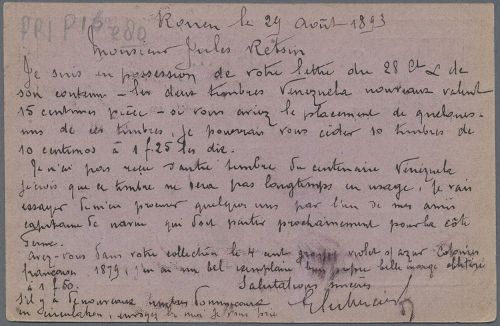 Rouen le 29 août 1893
Monsieur Jules Retsin
Je suis en possession de votre lettre du 28 Ct & de
son contenu – les deux timbres Venezuela nouveaux valent
15 centimes pièce – si vous aviez le placement de quelques-
uns de ces timbres, je pourrais vous céder 10 timbres de
10 centimos à 1 f. 25 les dix.
Je n'ai pas reçu d'autre timbre du centenaire Venezuela
je crois que ce timbre ne sera pas longtemps en usage. Je vais
essayer de m'en procurer quelques uns par l'un de mes amis
capitaine de navire qui doit partir prochainement pour la côte
ferme.
Avez-vous dans votre collection le 4 cent violet s/ azur Colonies
françaises 1879, j'en ai un bel exemplaire belle marge oblitéré
à 1 f. 50.
Salutations sincères
s'il y a de nouveaux timbres
en circulation, envoyez m'en je vous prie